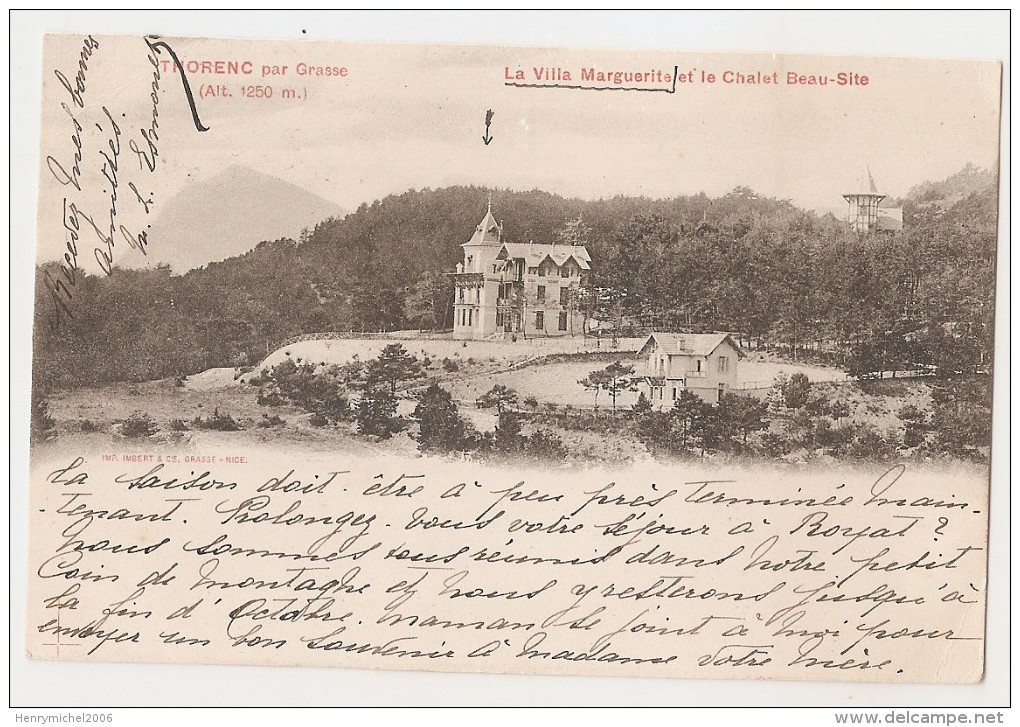 THORENC par Grasse
(Alt. 1250 m.)
La Villa Marguerite et le Chalet Beau-Site
Recevez mes bonnes
amitiés.
IMP. IMBERT & CIE, GRASSE - NICE.
La saison doit être à peu près terminée main-
tenant. Prolongez-vous votre séjour à Royat ?
Nous sommes tous réunis dans notre petit
coin de montagne et nous y resterons jusqu'à
la fin d'Octobre. Maman se joint à moi pour
envoyer un bon souvenir à Madame votre mère.
Henrymichel2006
www.delcampe.net